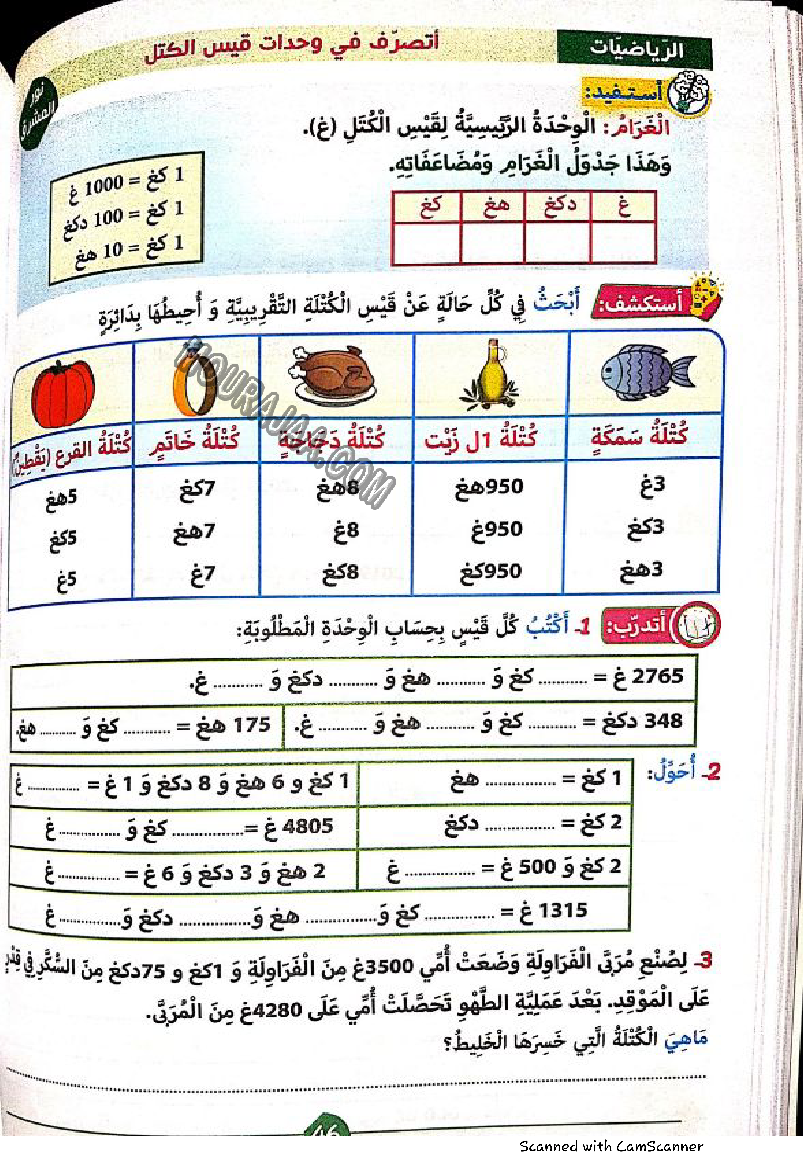 الرّياضيّات
أتصرّف في وحدات قيس الكتل
أستفيد:
الْغَرَامُ: الْوِحْدَةُ الرَّئِيسِيَّةُ لِقَيْسِ الْكُتَلِ (غ).
وَهَذَا جَدْوَلُ الْغَرَامِ وَمُضَاعَفَاتِهِ.
غ دكغ هغ كغ
1 كغ = 1000 غ
1 كغ = 100 دكغ
1 كغ = 10 هغ
أستكشف: أَبْحَثُ فِي كُلِّ حَالَةٍ عَنْ قَيْسِ الْكُتْلَةِ التَّقْرِيبِيَّةِ وَ أُحِيطُهَا بِدَائِرَةٍ
كُتْلَةُ سَمَكَةٍ كُتْلَةُ 1ل زَيْت كُتْلَةُ دَجَاجَةٍ كُتْلَةُ خَاتَمٍ كُتْلَةُ القرع (يَقْطِينٌ)
3غ 950هغ 8هغ 7كغ 5هغ
3كغ 950غ 8غ 7هغ 5كغ
3هغ 950كغ 8كغ 7غ 5غ
MOURAJAA.COM
أتدرّب: 1- أَكْتُبُ كُلَّ قَيْسٍ بِحِسَابِ الْوِحْدَةِ الْمَطْلُوبَةِ:
2765 غ = .......... كغ وَ .......... هغ وَ .......... دكغ وَ .......... غ.
348 دكغ = .......... كغ وَ .......... هغ وَ .......... غ. 175 هغ = .......... كغ وَ .......... هغ.
2- أُحَوِّلُ:
1 كغ = .............. هغ 1 كغ و 6 هغ وَ 8 دكغ وَ 1 غ = .......... غ
2 كغ = .............. دكغ 4805 غ =.............. كغ وَ ............ غ
2 كغ وَ 500 غ = .............. غ 2 هغ وَ 3 دكغ وَ 6 غ = ............ غ
1315 غ = .............. كغ وَ.............. هغ وَ.............. دكغ وَ............ غ
3- لِصُنْعِ مُرَبَّى الْفَرَاوِلَةِ وَضَعَتْ أُمِّي 3500غ مِنَ الْفَرَاوِلَةِ وَ 1كغ و 75دكغ مِنَ السُّكَّرِ فِي قِدْرٍ
عَلَى الْمَوْقِدِ. بَعْدَ عَمَلِيَّةِ الطَّهْوِ تَحَصَّلَتْ أُمِّي عَلَى 4280غ مِنَ الْمُرَبَّى.
مَاهِيَ الْكُتْلَةُ الَّتِي خَسِرَهَا الْخَلِيطُ؟
Scanned with CamScanner